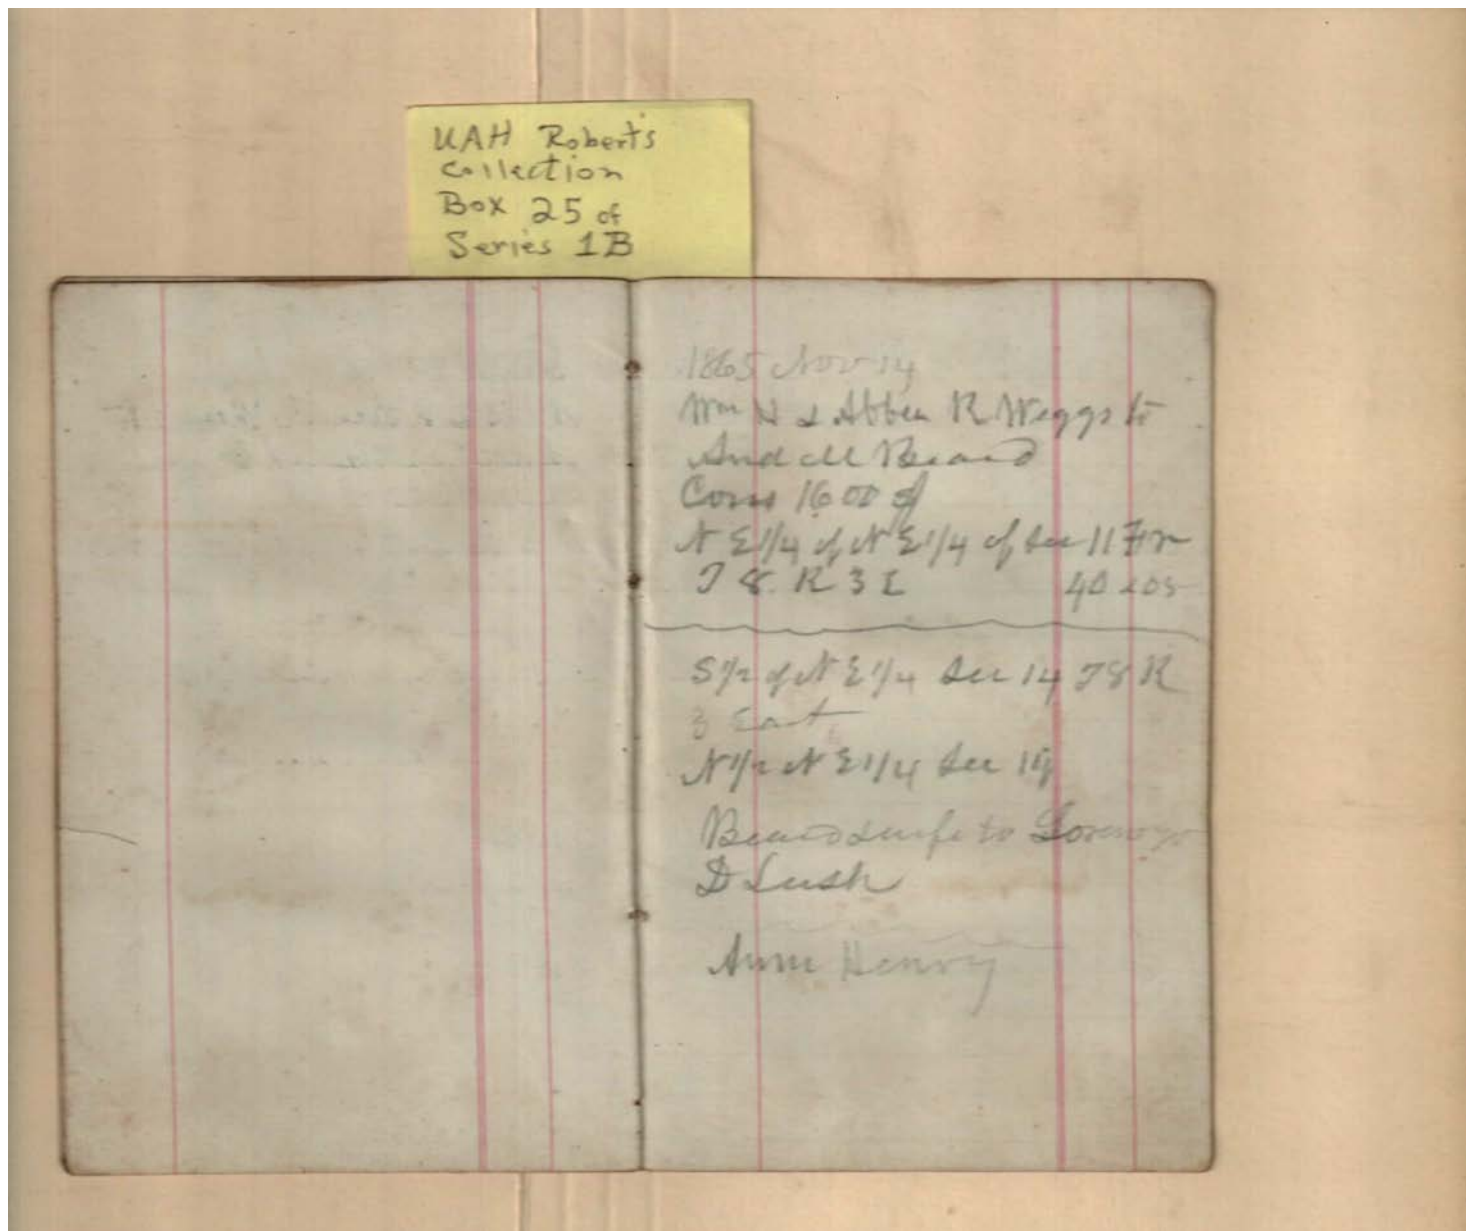 UAH Robert's
Collection
Box 25 of
Series 1B
1865 Nov 14
Wm H & Abbea R Weggs to
And M Beard
Cons 1600 of
N E 1/4 of N E 1/4 of Sec 11
T 8. R 3 E 40
S 1/2 of N E 1/4 Sec 14 T 8 R
3 East
N 1/2 N E 1/4 Sec 14
Beard & wife to Lorenzo
D Lush
Anne Henry